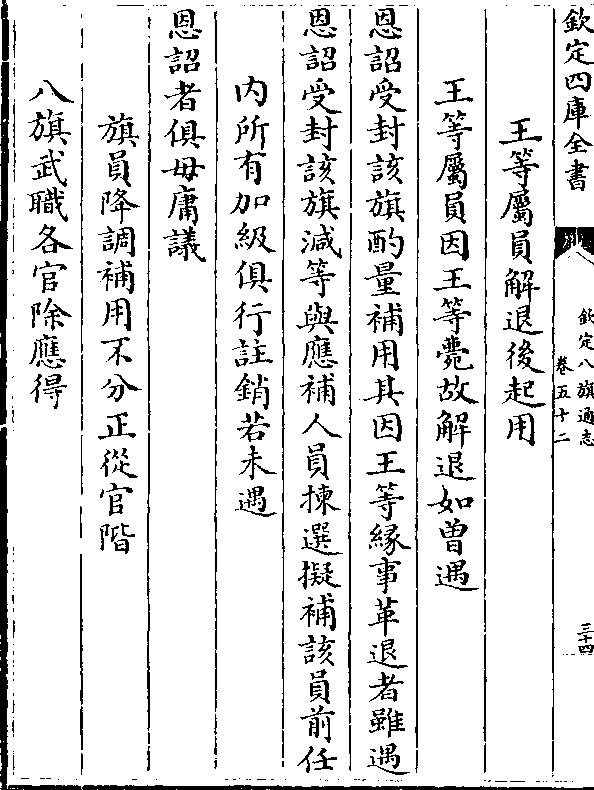 欽定四庫全書
欽定八旗通志
卷五十二
三十四
王等屬員解退後起用
王等屬員因王等薨故解退如曾遇
恩詔受封該旗酌量補用其因王等緣事革退者雖遇
恩詔受封該旗減等與應補人員揀選擬補該員前任
内所有加級俱行註銷若未遇
恩詔者俱毋庸議
旗員降調補用不分正從官階
八旗武職各官除應得